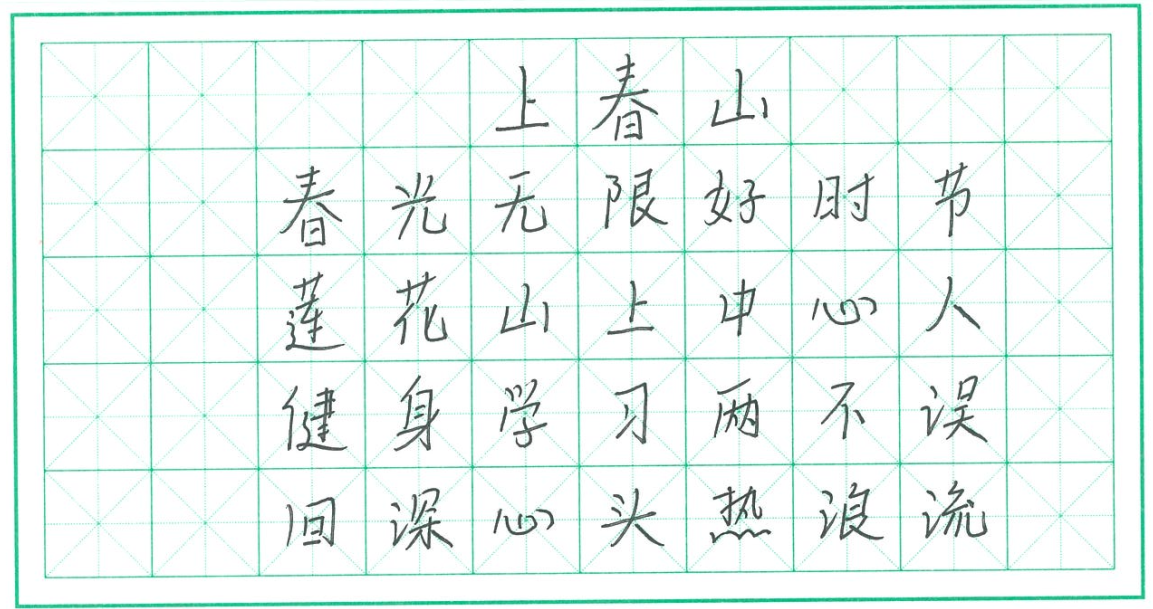 上春山
春光无限好时节
莲花山上中心人
健身学习两不误
回深心头热浪流